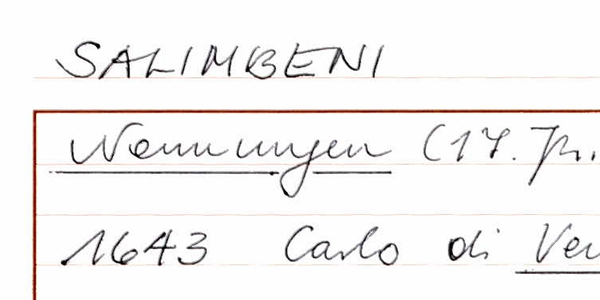 SALIMBENI
Nennungen (17. Jh.
1643 Carlo di Ver